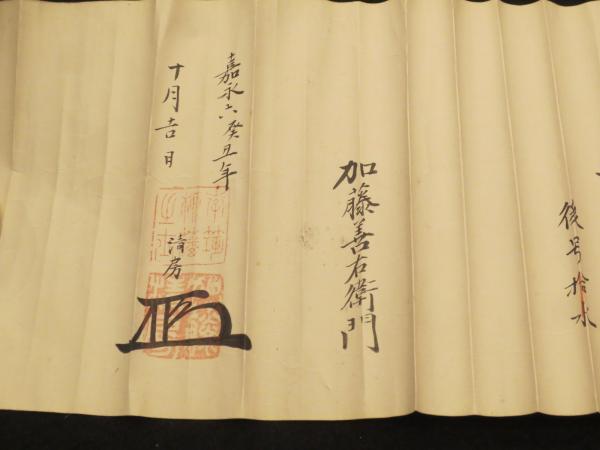 後号拾水
加藤善右衛門
清房
嘉永六癸丑年
十月吉日